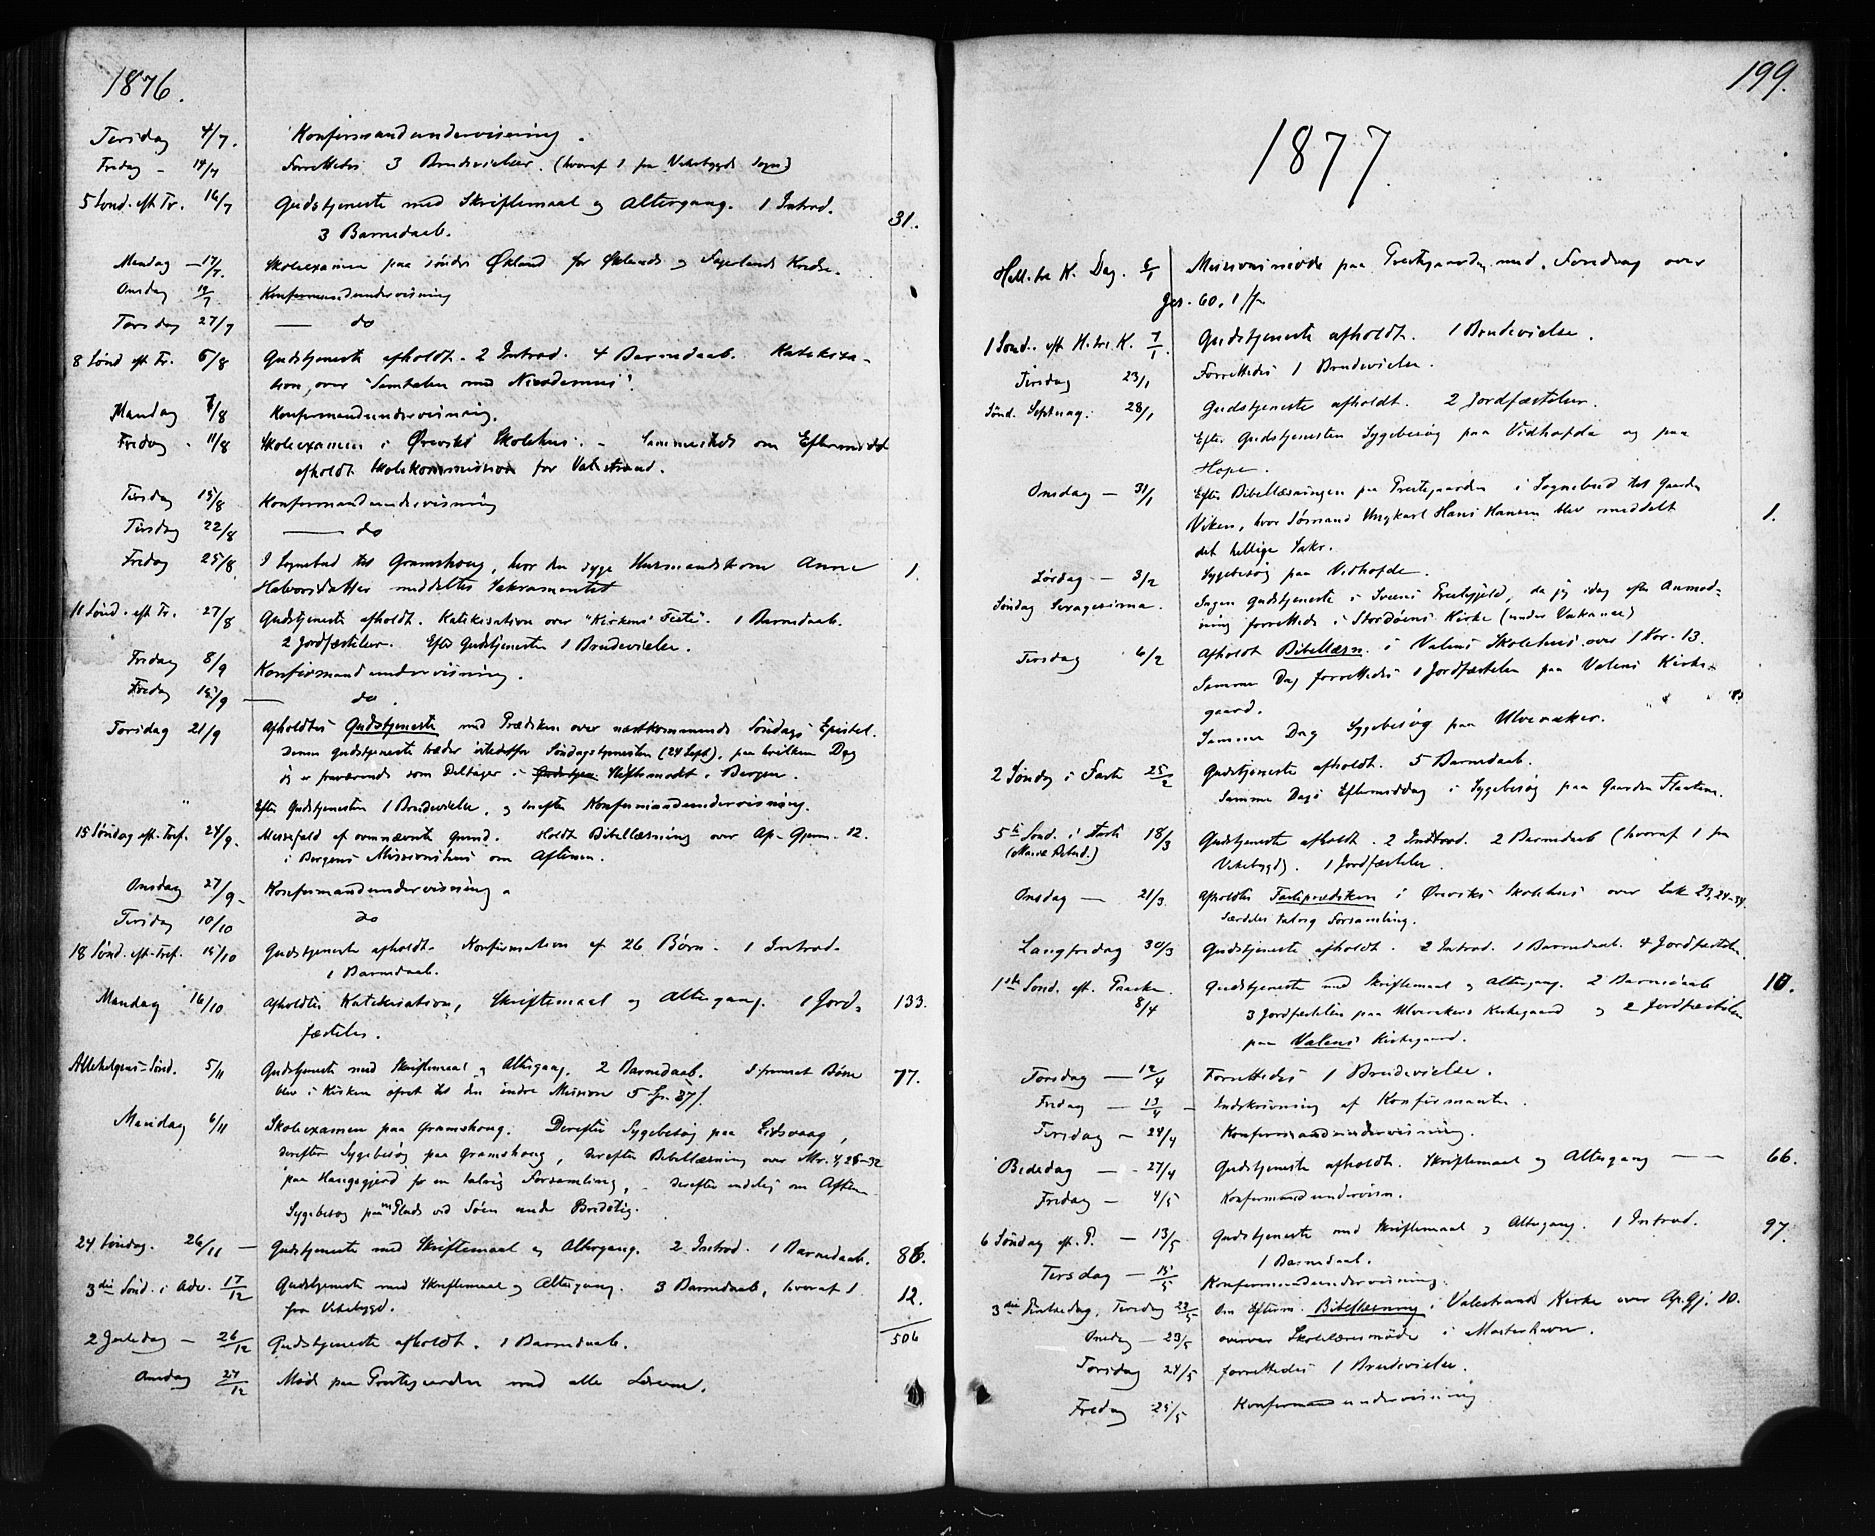 1876.
Tirsdag 4/7. Konfirmandundervisning.
Fredag - 14/7 Forrettedes 3 Brudevielser. (hvoraf 1 fra Vikebygds Sogn)
5 Sønd. eft. Tr. 16/7 Gudstjeneste med Skriftemaal og Altergang. 1 Introd. 31.
3 Barnedaab.
Mandag - 17/7. Skoleexamen paa søndre Økland for Øklands og Fagerlands Kredse.
Onsdag 19/7 Konfirmandundervisning
Torsdag 27/7 — do
8 Sønd eft. Tr. 6/8 Gudstjeneste afholdt. 2 Introd. 4 Barnedaab. Katekisa-
tion, over "Samtalen med Nicodemus".
Mandag 7/8 Konfirmandundervisning.
Fredag - 11/8 Skoleexamen i Ørevik Skolehus. - Sammesteds om Eftermidd
afholdt Skolekommission for Valestrand.
Tirsdag 15/8 Konfirmandundervisning
Tirsdag 22/8 — do
Fredag 25/8. I Sognebud til Gramshoug, hvor den syge Husmandskone Anne 1.
Halvorsdatter meddeltes Sakramentet
11 Sønd. eft. Tr. 27/8 Gudstjeneste afholdt. Katekisation over "Kirkens Feste". 1 Barnedaab.
2 Jordfæstelser. Efter Gudstjenesten 1 Brudevielse.
Fredag 8/9 Konfirmandundervisning.
Fredag 15/9 — do.
Torsdag 21/9 Afholdtes Gudstjeneste med Prædiken over næstkommende Søndags Epistel.
Denne Gudstjeneste træder istedetfor Søndagstjenesten (24 Sept), paa hvilken Dag
jeg er fraværende som Deltager i Stiftsmødet i Bergen.
" Efter Gudstjenesten 1 Brudevielse, og derefter Konfirmandundervisning.
15 Søndag eft. Tref. 24/9. Messefald af ovennævnte Grund. Holdt Bibellæsning over Ap. Gjern. 12.
i Bergens Missionshus om Aftenen.
Onsdag 27/9. Konfirmandundervisning.
Tirsdag 10/10 do
18 Sønd. eft. Tref. 15/10 Gudstjeneste afholdt. Konfirmation af 26 Børn. 1 Introd.
1 Barnedaab.
Mandag 16/10 Afholdtes Katekisation, Skriftemaal og Altergang. 1 Jord- 133.
fæstelse.
Allehelgens-Sønd. 5/11 Gudstjeneste med Skriftemaal og Altergang. 2 Barnedaab. 77.
blev i Kirken ofret til den indre Mission 5
Mandag 6/11 Skoleexamen paa Gramshoug. Derefter Sygebesøg paa Eidsvaag,
derefter Sygebesøg paa Gramshoug, derefter Bibellæsning over Mr. 4, 26-32
paa Haugsgjerd for en talrig Forsamling, - derefter endelig om Aften
Sygebesøg paa en Plads ved Søen
24 Søndag. 26/11 - Gudstjeneste med Skriftemaal og Altergang. 2 Introd. 1 Barnedaab. 86.
3die Sønd. i Adv. 17/12 Gudstjeneste med Skriftemaal og Altergang. 3 Barnedaab, hvoraf 1 12.
fra Vikebygd.
2 Juledag - 26/12 Gudstjeneste afholdt. 1 Barnedaab. 506
Onsdag 27/12 Møde paa Prestegaarden med alle Lærerne.
199.
1877.
Hell. tre K. Dag. 6/1 Missionsmøde paa Prestgaarden med Foredrag over
Jes. 60, 1 ff.
1 Sønd. eft. H. tre K. 7/1. Gudstjeneste afholdt. 1 Brudevielse.
Tirsdag 23/1 Forrettedes 1 Brudevielse.
Sønd. Septuag. 28/1 Gudstjeneste afholdt. 2 Jordfæstelser.
Efter Gudstjenesten Sygebesøg paa Vidhofde og paa
Hope.
Onsdag - 31/1 Efter Bibellæsningen paa Prestegaarden i Sognebud til Gaarden
Viken, hvor Sømand Ungkarl Hans Hansen blev meddelt 1.
det hellige Sakr.
Lørdag - 3/2 Sygebesøg paa Vidhofde.
Søndag Sexagesima. Ingen Gudstjeneste i Sveens Prestegjeld, da jeg idag efter Anmod-
ning forrettede i Stordøens Kirke (under Vakance)
Tirsdag 6/2 Afholdt Bibellæsn. i Valens Skolehus over 1 Kor. 13.
Samme Dag forrettedes 1 Jordfæstelse paa Valens Kirke-
gaard.
Samme Dag Sygebesøg paa Ulveraker.
2 Søndag i Faste 25/2 Gudstjeneste afholdt. 5 Barnedaab.
Samme Dags Eftermiddag i Sygebesøg paa Gaarden Flaatene.
5te Sønd. i Faste 18/3 Gudstjeneste afholdt. 2 Introd. 2 Barnedaab (hvoraf 1 fra
(Mariæ Bebud.) Vikebygd). 1 Jordfæstelse.
Onsdag — 21/3 Afholdtes Fasteprædiken i Øreviks Skolehus over Luk 23,
Særdeles talrig Forsamling.
Langfredag 30/3 Gudstjeneste afholdt. 2 Introd. 1 Barnedaab. 4 Jordfæstelser
1ste Sønd. eft. Paaske. 8/4 Gudstjeneste med Skriftemaal og Altergang. 2 Barnedaab 10.
3 Jordfæstelser paa Ulverakers Kirkegaard og 2 Jordfæstelser
paa Valens Kirkegaard.
Torsdag — 12/4 Forrettedes 1 Brudevielse.
Fredag — 13/4 - Indskrivning af Konfirmanter.
Tirsdag - 24/4 Konfirmandundervisning.
Bededag — - 27/4 Gudstjeneste afholdt. Skriftemaal og Altergang — — 66.
Fredag — 4/5 Konfirmandundervisn.
6 Søndag eft. P. - 13/5 Gudstjeneste med Skriftemaal og Altergang. 1 Introd. 97.
1 Barnedaab.
Tirsdag - 15/5 Konfirmandundervisning.
3die Pintsedag, Tirsdag 22/5 Om Efterm. Bibellæsning i Valestrands Kirke over Ap. Gj. 10.
Onsdag - 23/5 overvar Skolelærermøde i Mosterhavn.
Torsdag 24/5 forrettedes 1 Brudevielse.
Fredag 25/5 Konfirmandundervisning